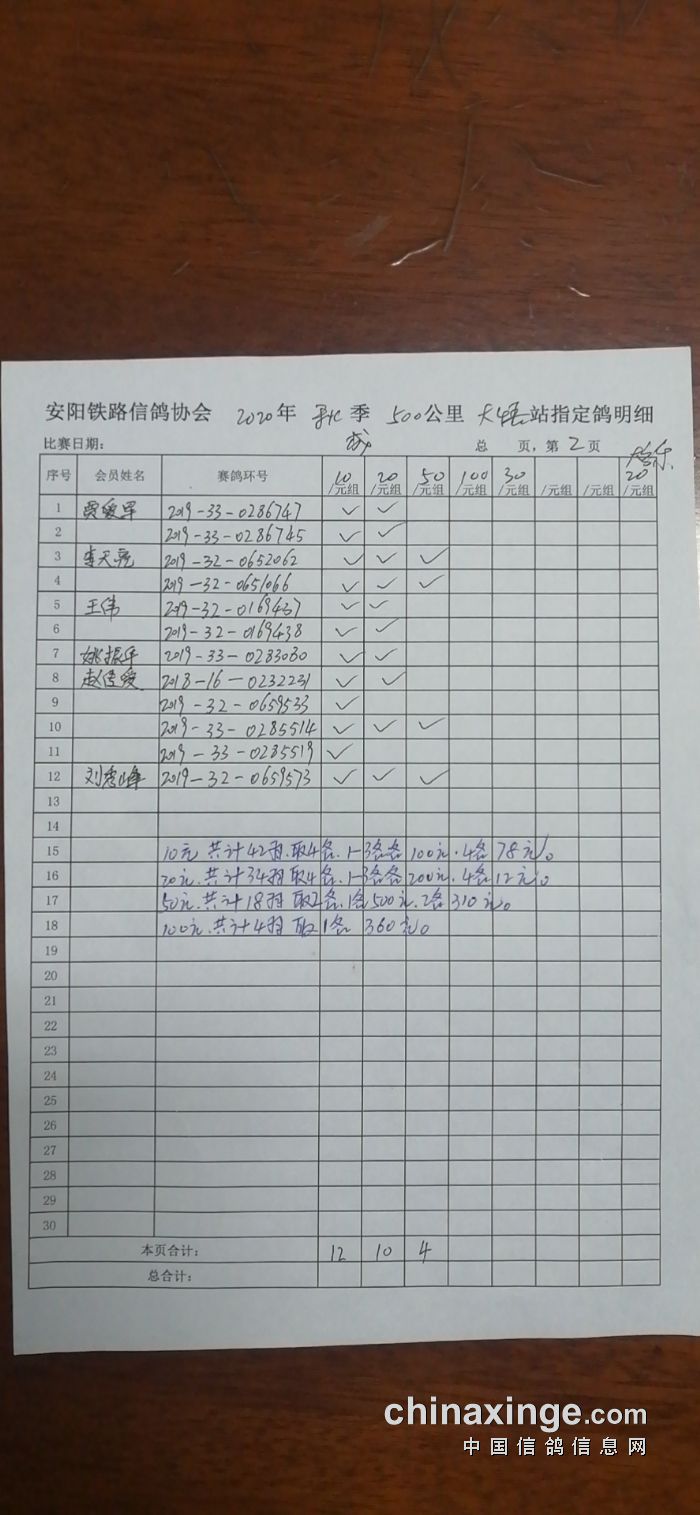 安阳铁路信鸽协会 2020年 秋季 500公里 大悟站指定鸽明细
比赛日期: 总 页,第2页
序号 会员姓名 赛鸽环号 10/元组 20/元组 50/元组 100/元组 30/元组 /元组 /元组 20/元组
1 贾爱军 2019-33-0286747 ✓ ✓
2 2019-33-0286745 ✓ ✓
3 李天亮 2019-32-0652062 ✓ ✓ ✓
4 2019-32-0651066 ✓ ✓ ✓
5 王伟 2019-32-0169437 ✓ ✓
6 2019-32-0169438 ✓ ✓
7 姚振华 2019-33-0283080 ✓ ✓
8 赵 爱 2018-16-0232231 ✓ ✓
9 2019-32-0659533 ✓
10 2019-33-0285514 ✓ ✓ ✓
11 2019-33-0285519 ✓
12 刘秀峰 2019-32-0659573 ✓ ✓ ✓
13
14
15 10元 共计42羽.取4名.1-3名各100元.4名78元。
16 20元.共计34羽取4名.1-3名各200元.4名12元。
17 50元.共计18羽 取2名.1名500元.2名310元。
18 100元.共计4羽 取1名 360元。
19
20
21
22
23
24
25
26
27
28
29
30
本页合计: 12 10 4
总合计:
chinaxinge.com
中国信鸽信息网